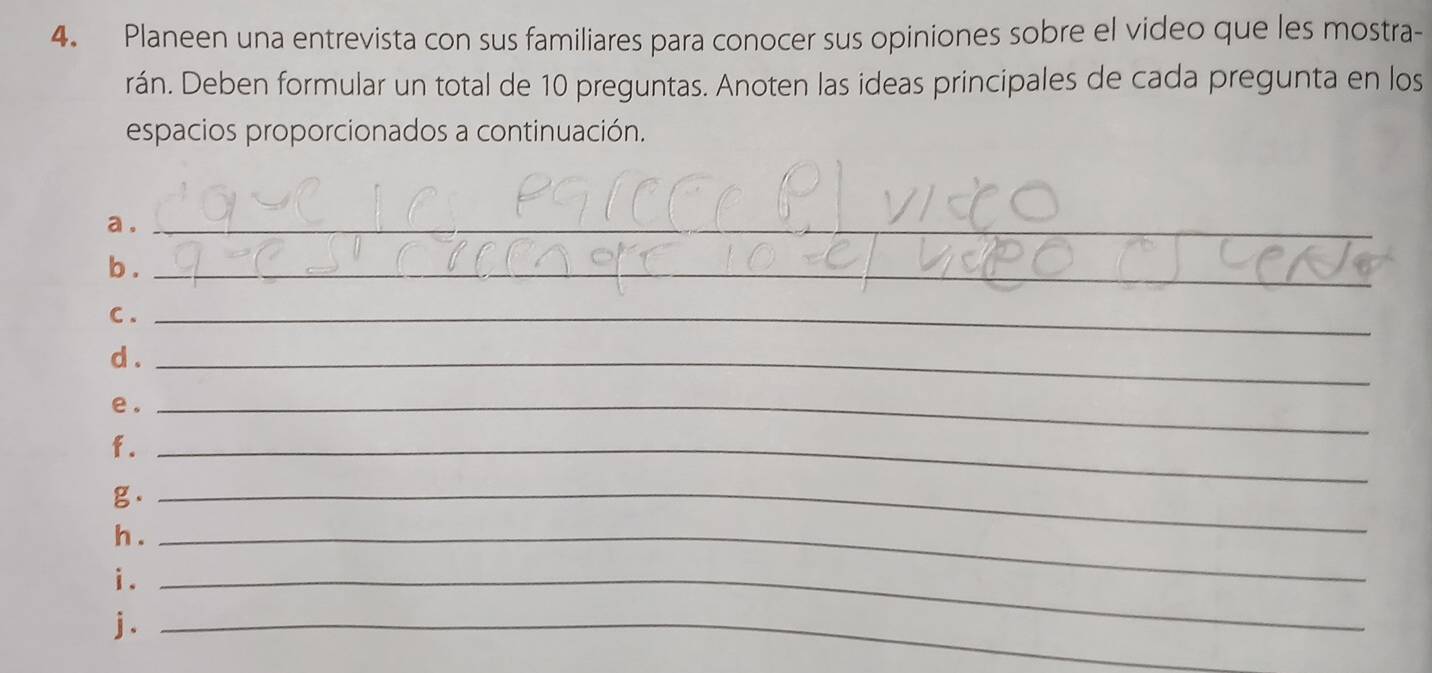 4. Planeen una entrevista con sus familiares para conocer sus opiniones sobre el video que les mostra-
rán. Deben formular un total de 10 preguntas. Anoten las ideas principales de cada pregunta en los
espacios proporcionados a continuación.
a. que les parece el video
b. que si creen que lo el video es
c.
d.
e.
f.
g.
h.
i.
j.